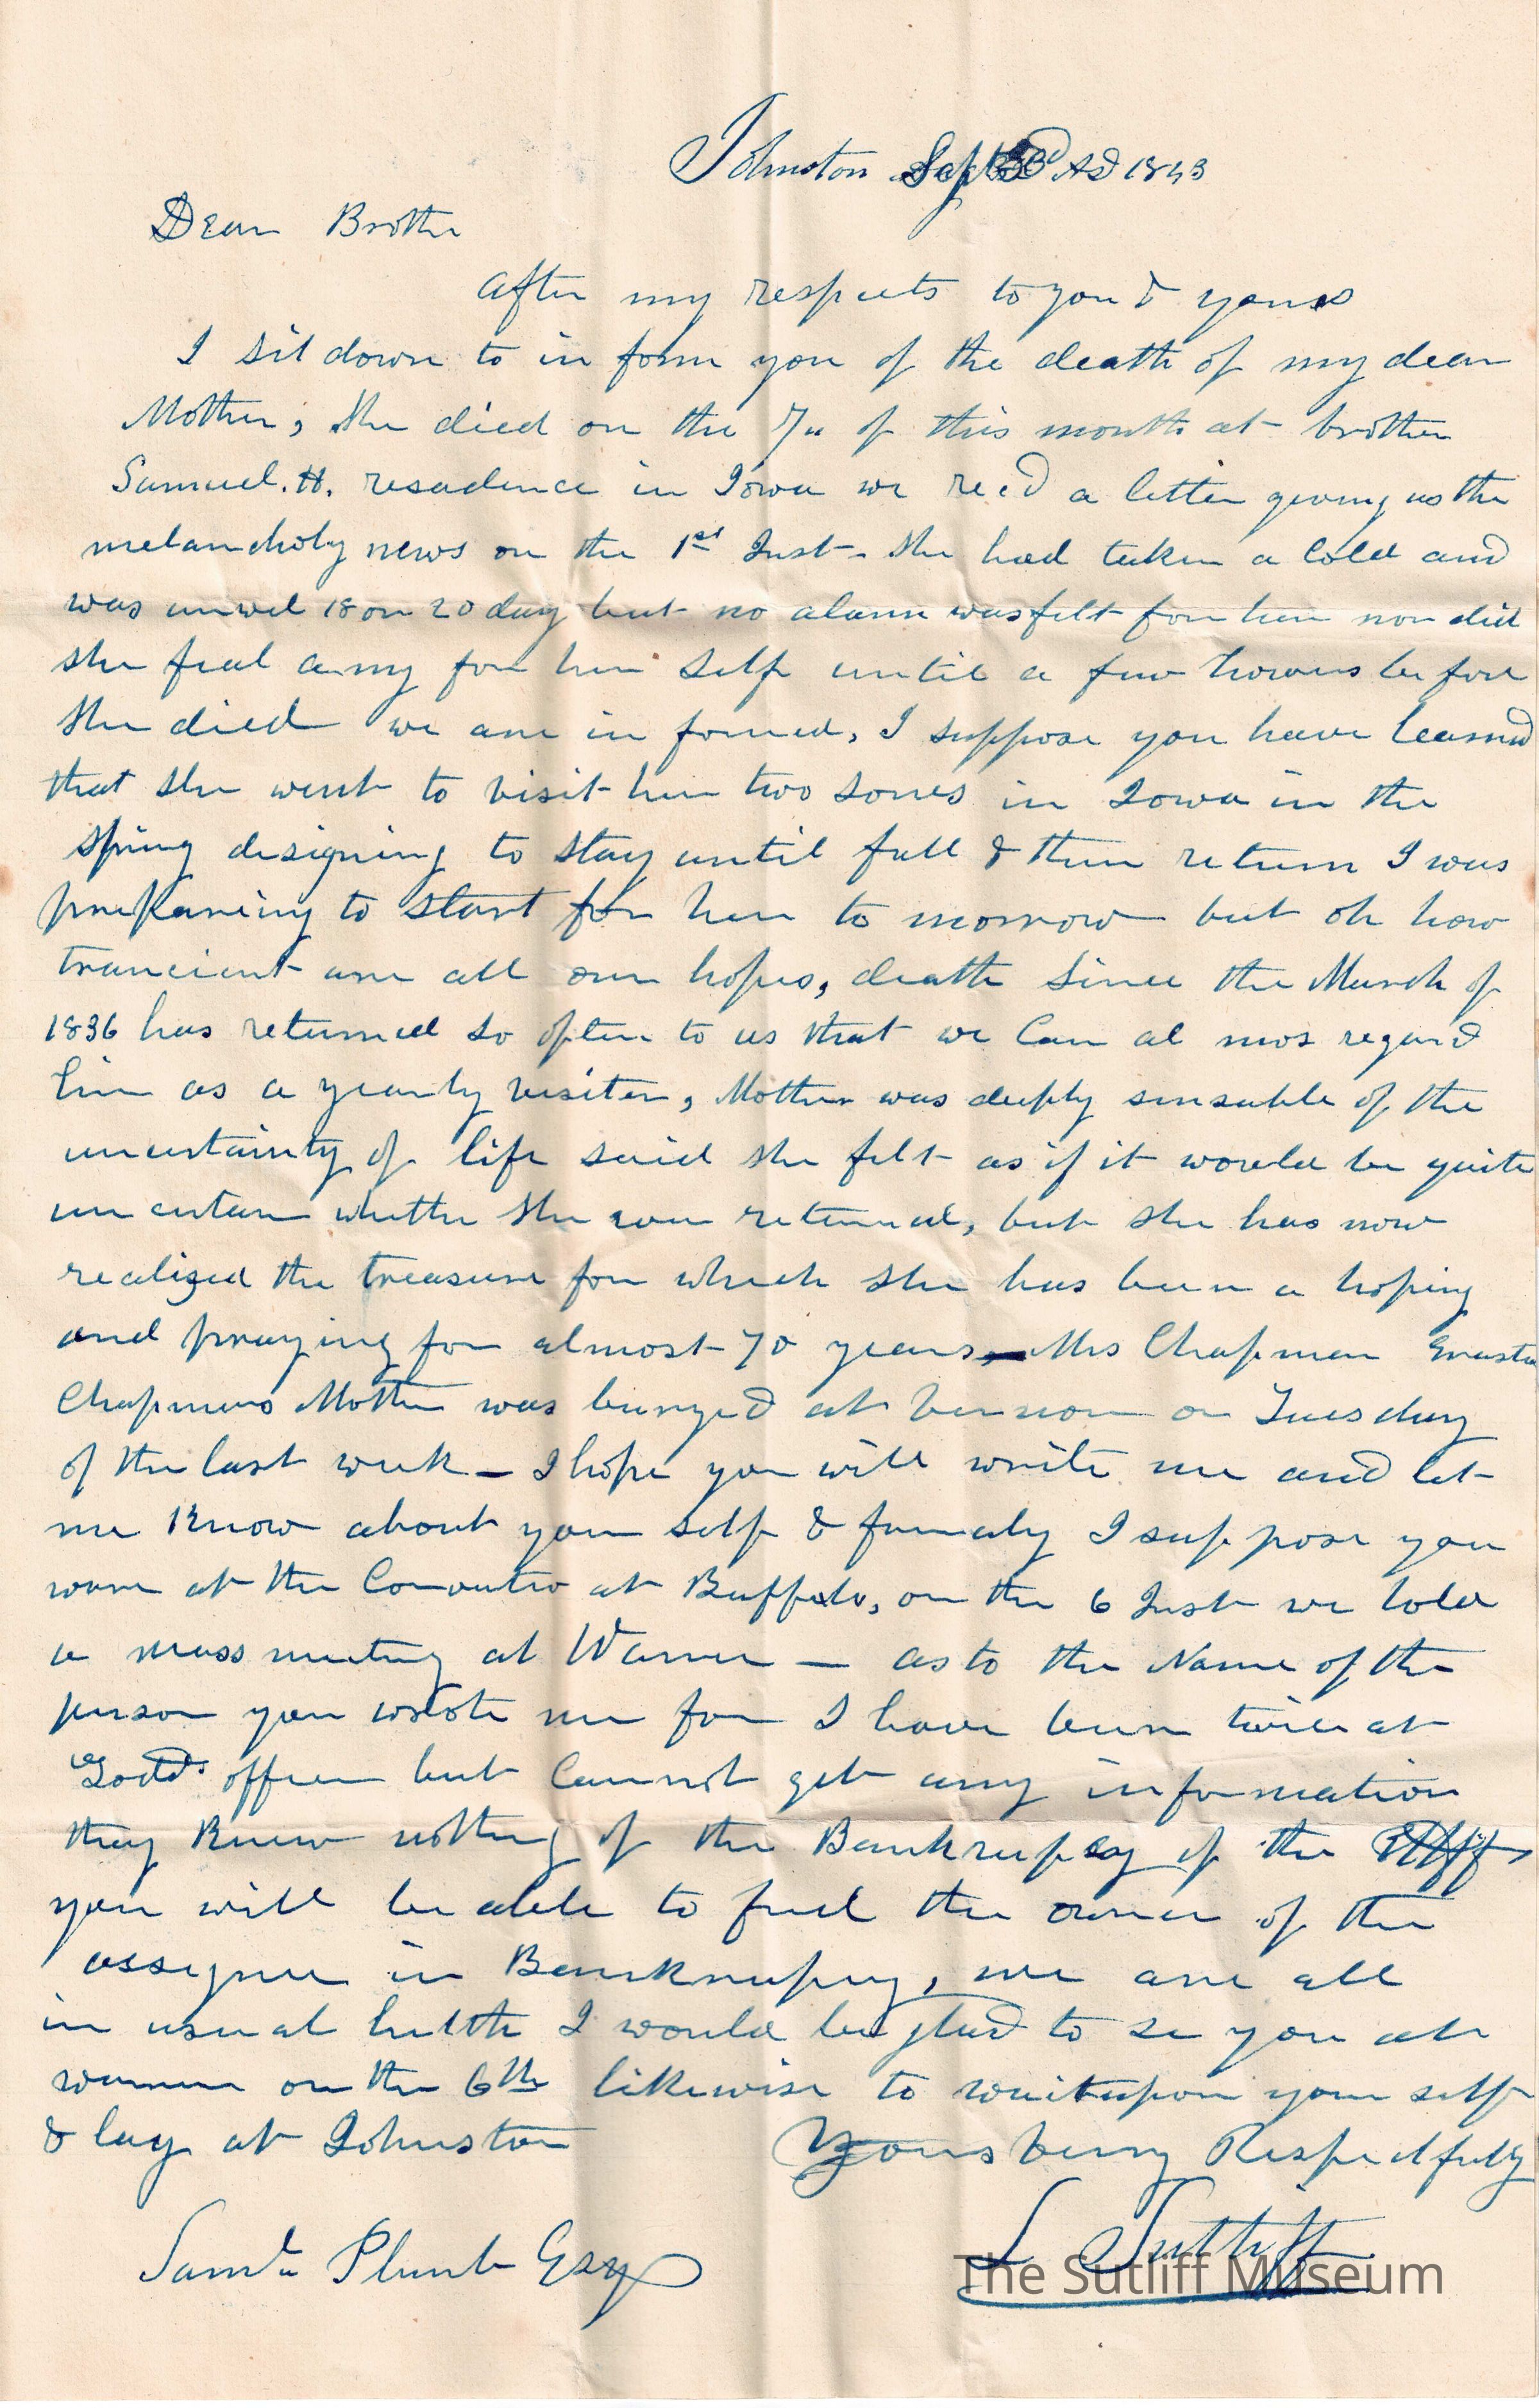 Johnston Sept AD 1843
Dear Brother
After my respects to you & yours
I sit down to in form you of the death of my dear
Mother, she died on the 7" of this month at brother
Samuel. H. resadence in Iowa we recd a letter geving us the
melancholy news on the 1st Inst- she had taken a Cold and
was unwel 18 or 20 day but no alarm was felt for her nor did
she feal any for her self until a few howers be fore
she died we are in formed, I suppose you have learned
that she went to visit her two sones in Iowa in the
spring designing to stay until fall & then return I was
prepareing to start for her to morrow but oh how
trancient are all our hopes, death since the March of
1836 has returned so often to us that we Can al mos regard
him as a yearly visiter, Mother was deeply sensable of the
uncertainty of life said she felt as if it would be quite
un certain whether she ever returned, but she has now
realized the treasure for which she has been a hoping
and praying for almost 70 years, Mrs Chapman Erasta
Chapmans Mother was buryed at Vernon on Tuesday
of the last week - I hope you will write me and let
me Know about your self & famaly I suppose you
ware at the at Buffalo, on the 6 Inst we hold
a mass meeting at Warren - as to the Name of the
person you wrote me for I have been twice at
offices but Cannot get any information
they Knew nothing of the Bankrupcy of the
you will be able to find the owner of the
assignee in Bankrupcy, we are all
in usual helth I would be glad to se you at
warren on the 6th likewise to wait upon your self
& lay at Johnston
Yours very Respectfully
L Sutliff
Saml Plumb Esq
The Sutliff Museum